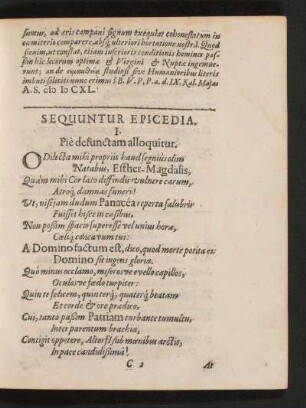 suetur, ad aris campani signum exequiae cohonestatum in
coemiterio comparere, absq́; ulteriori hortatione nostrâ. Quod
si enim, ut constat, etiam inferioris conditionis homines pas-
sim hîc locorum optimæ & Virgini & Nuptæ ingemue-
runt; an de
studiosi sive Humanioribus literis
imbuti soliciti nunc erimus? B. V. P. P. a. d. IX. Kal. Majas
A. S. cIɔ Iɔ CXL.
SEQUUNTUR EPICEDIA.
I.
Piè defunctam alloquitur.
O Dilecta mihi propriis haud segniùs olim
Natabus, Esther-Magdalis,
Quàm mihi Cor lato diffindis vulnere carum,
Atroq́; damnas funeri!
Ut, nisi jam dudum Panacéa reperta salubris
Fuisset hisce in casibus,
Non possim spacio superesse vel unius hora,
Cælíq; conca rum tui:
A Domino factum est, dico, quod morte potita ex
Domino sis ingens gloria.
Quò minus occlamo, miseros ve evello capillos,
Oculos ve fœdo turpiter:
Quin te felicem, quinterq́;, quaterq́; beatam
Et corde & ore prædico,
Cui, tanto passim Patriam turbante tumultu,
Inter parentum brachia,
Contigit oppetere, Altorfî sub mœnibus arctis,
In pace candidissimâ!
C 2 At